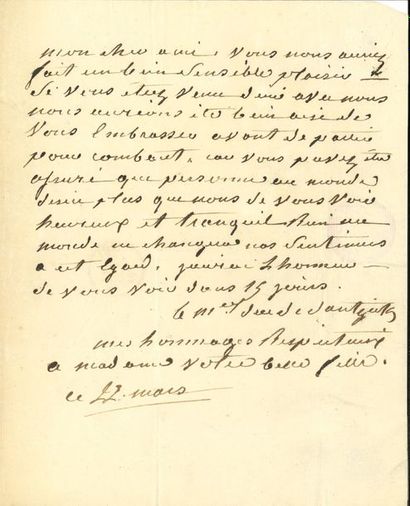 mon cher ami, vous nous auriez
fait un bien sensible plaisir
si vous étiez venu diné avec nous
nous aurions été bien aise de
vous embrasser avant de partir
pour combaut, car vous pouvez etre
assuré que personne au monde
desire plus que nous de vous voir
heureux et tranquil Rien au
monde ne changera nos sentimens
a cet Egard, j'aurai L'honneur
de vous voir dans 15 jours.
le m.al duc de dantzick
mes hommages Respectueux
a madame votre belle fille.
ce 22 mars